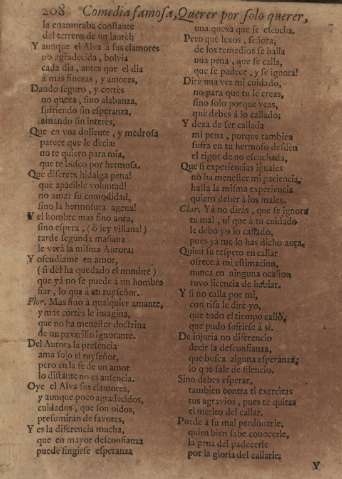 208 Comedia famosa, Querer por solo querer,
la enamoraba constante
del terreno de un laurel:
Y aunque el Alva à sus clamores
no agradecida, bolvia
cada dia, antes que el dia
à mas finezas, y amores,
Dando seguro, y cortès
no quexa, sino alabanza,
sufriendo sin esperanza,
amando sin interès,
Que en voz doliente, y medrosa
parece que le decia:
no te quiero para mia,
que te busco por hermosa.
Que diferente hidalga pena!
què apacible voluntad!
no amar su comodidad,
sino la hermosura agena!
Y el hombre mas fino aora,
sino espera, (ò ley villana!)
tarde segunda mañana
le verà la misma Aurora:
Y ofendime en amor,
(si dèl ha quedado el nombre)
que yà no se puede à un hombre
fiar, lo que à un ruyseñor.
Flor. Mas fino à qualquier amante,
y mas cortès le imagina,
que no ha menester doctrina
de un paxarillo ignorante.
Del Aurora la presencia
ama solo el ruyseñor,
pero en la fè de un amor
lo distante no es ausencia.
Oye el Alva sus clamores,
y aunque poco agradecidos,
cuidados, que son oidos,
presumiràn de favores,
Y es la diferencia mucha,
que en mayor desconfianza
puede fingirse esperanza
una quexa que se escucha.
Pero què lexos, señora,
de los remedios se halla
una pena, que se calla,
que se padece, y se ignora!
Dirè una vez mi cuidado,
no para que tu le creas,
sino solo porque veas,
què debes à lo callado;
Y dexa de ser callada
mi pena, porque tambien
sufra en tu hermoso desdèn
el rigor de no escuchada,
Que si experiencias iguales
no ha menester mi paciencia,
halla la misma experiencia
quien desier à los males.
Clar. Yà no diràs, que se ignora
tu mal, ni que à tu cuidado
le debo yo lo callado,
pues yà me lo has dicho aora,
Quitas tu respeto en callar
ofrece à mi estimacion,
nunca en ninguna ocasion
tuvo licencia de hablar.
Y si no calla por mi,
con risa le dirè yo,
que todo el tiempo callò,
que pudo sufrirse à sì.
De injuria no diferencio
decir la desconfianza,
que busca alguna esperanza
lo que sale de silencio.
Sino debes esperar,
tambien contra ti exercitas
tus agravios, pues te quitas
el merito del callar.
Puede à su mal perdonarle,
quien bien sabe conocerle,
la pena del padecerle
por la gloria del callarle;
Y